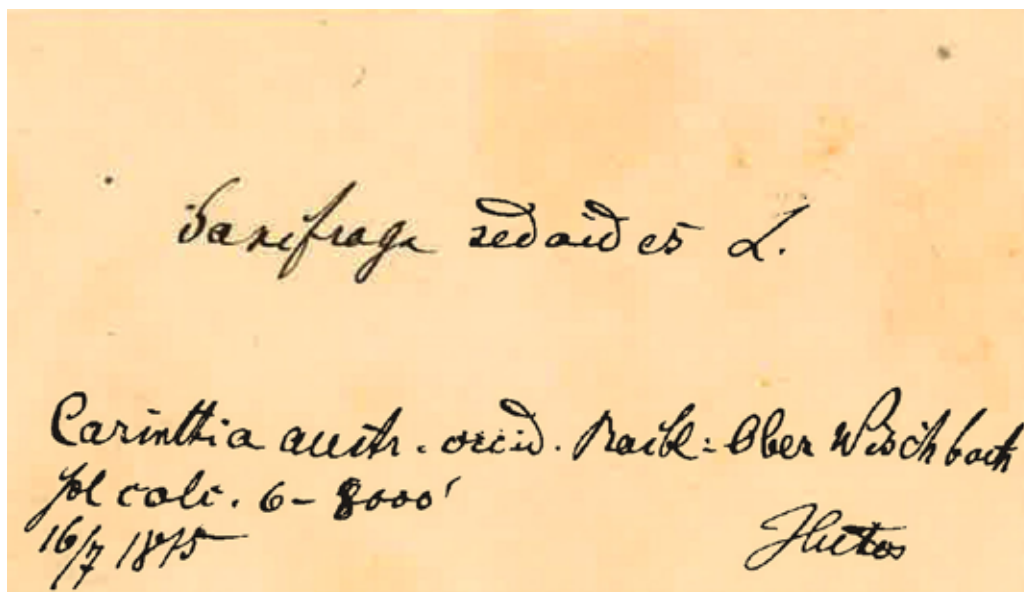 Saxifraga sedoides L.
Carinthia austr. occid. Raibl: Ober Wischbach
sol calc. 6-8000'
16/7 1875
Huter